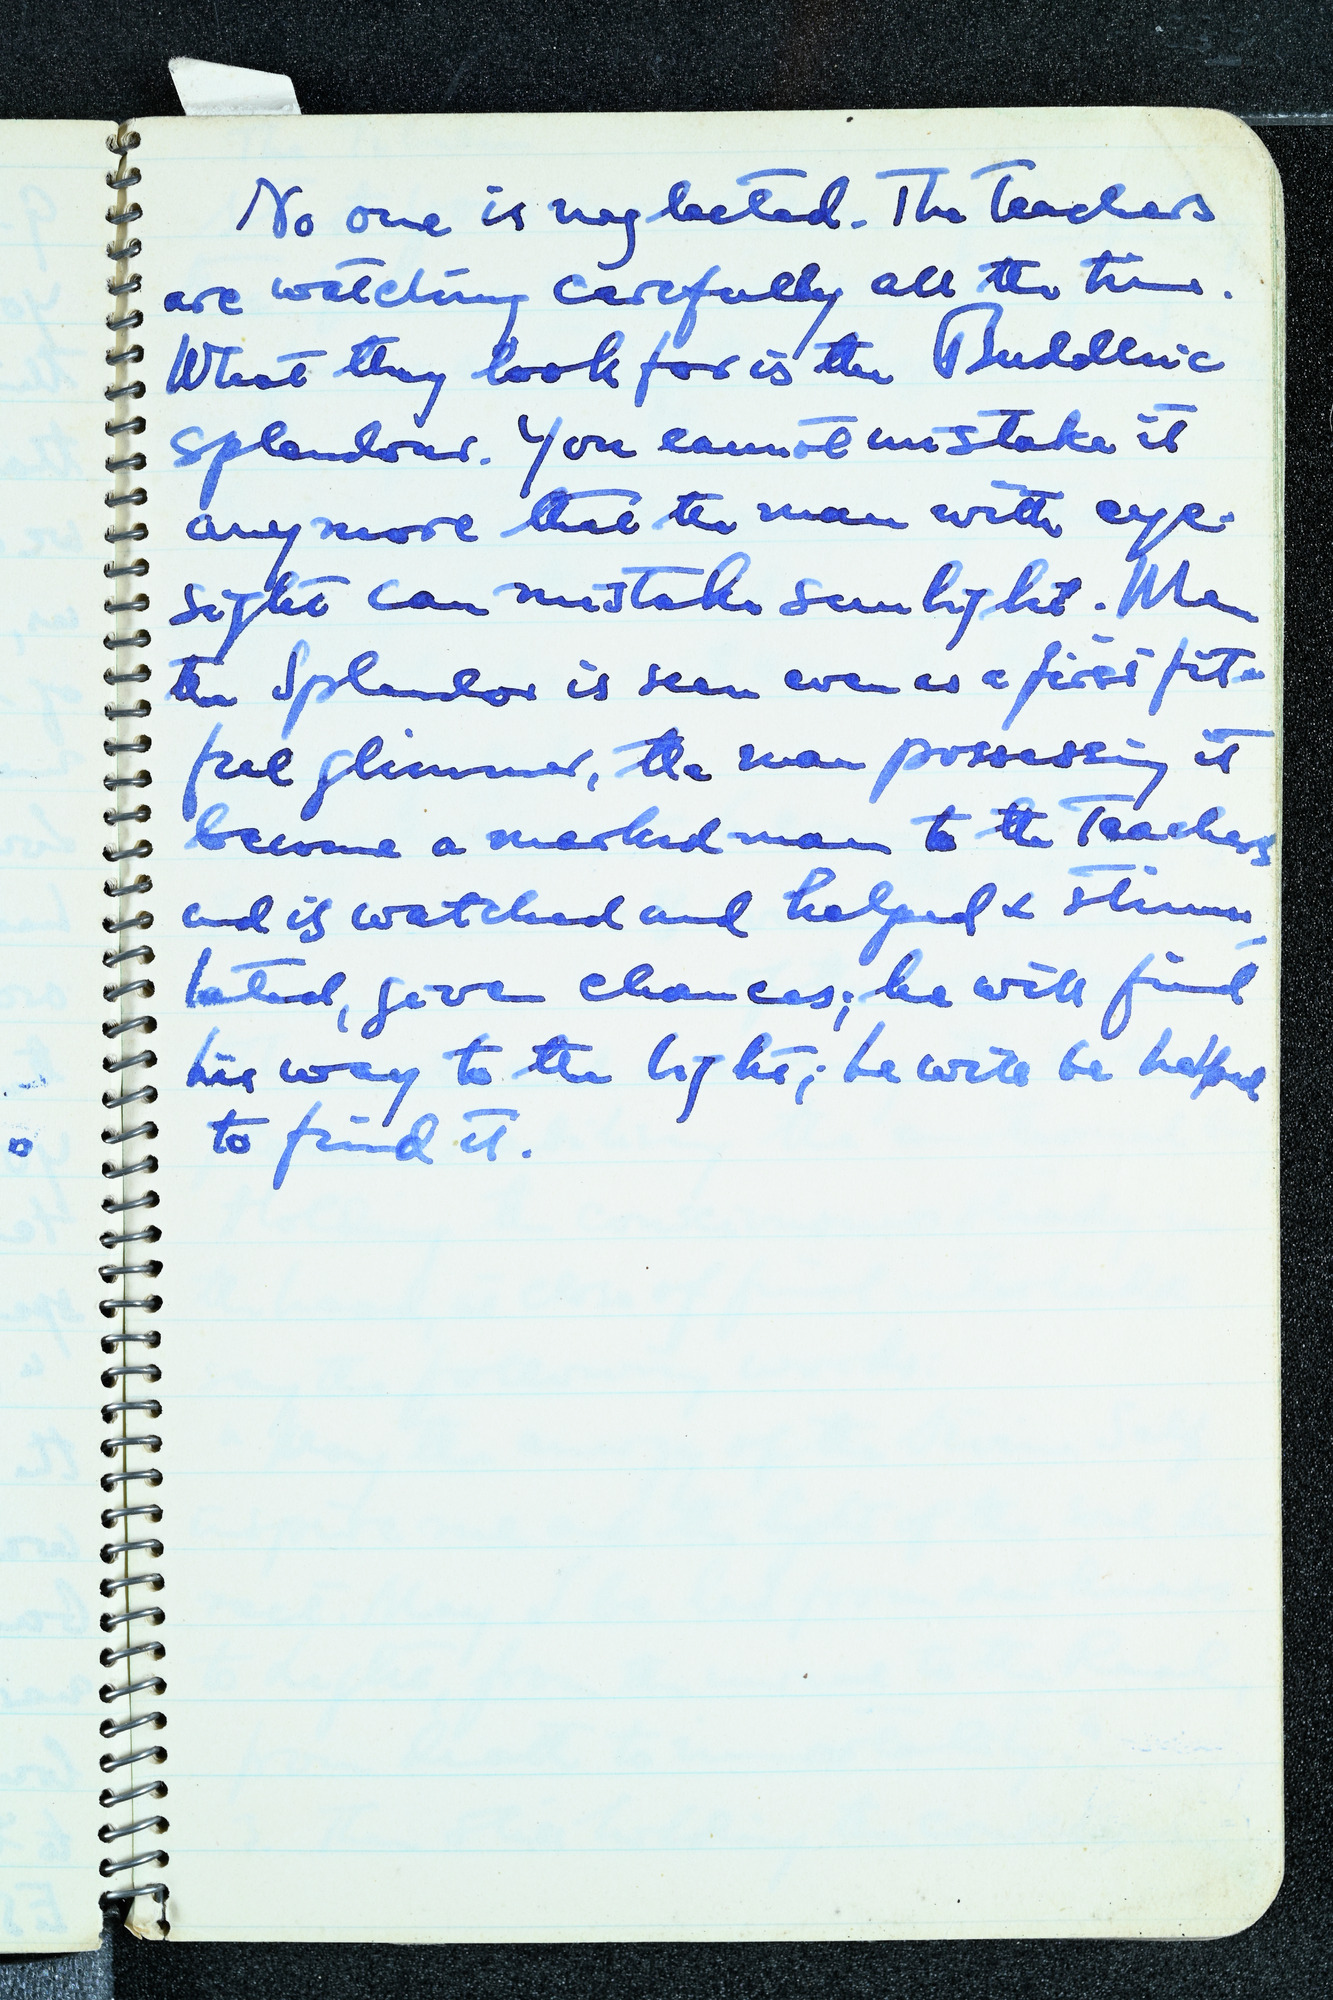 No one is neglected. The Teachers
are watching carefully all the time.
What they look for is the Buddhic
splendour. You cannot mistake it
anymore that the man with eye-
sight can mistake sunlight. When
the Splendor is seen even as a first fit-
ful glimmer, the man possessing it
become a marked man to the Teachers
and is watched and helped & stimu-
lated, given chances; he will find
his way to the light; he will be helped
to find it.